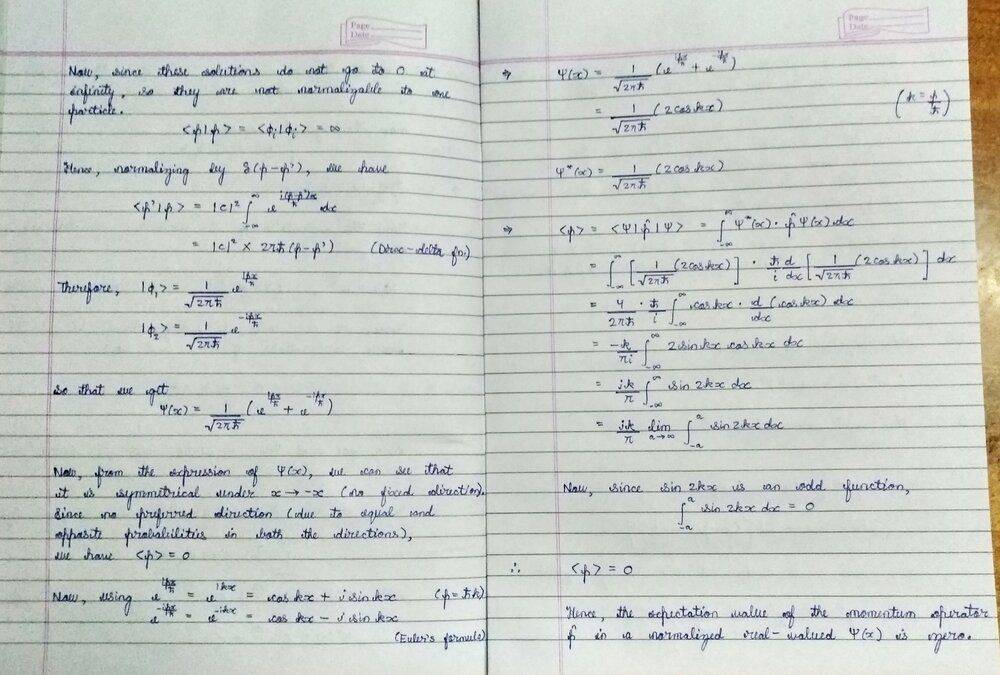 Page
Date
Now, since these solutions do not go to 0 at
infinity, so they are not normalizable to one
particle.
<p|p> = <ϕᵢ|ϕᵢ> = ∞
Hence, normalizing by δ(p-p'), we have
<p'|p> = |c|² ∫_{-∞}^{∞} e^{i(p-p')x/ħ} dx
= |c|² × 2πħ(p-p') (Dirac-delta fn.)
Therefore, |ϕ₁> = 1/√(2πħ) e^{ipx/ħ}
|ϕ₂> = 1/√(2πħ) e^{-ipx/ħ}
So that we get
Ψ(x) = 1/√(2πħ) (e^{ipx/ħ} + e^{-ipx/ħ})
Now, from the expression of Ψ(x), we can see that
it is symmetrical under x → -x (no fixed direction).
Since no preferred direction (due to equal and
opposite probabilities in both the directions),
we have <p> = 0
Now, using e^{ipx/ħ} = e^{ikx} = cos kx + i sin kx (p = ħk)
e^{-ipx/ħ} = e^{-ikx} = cos kx - i sin kx
(Euler's formula)
Page
Date
⇒ Ψ(x) = 1/√(2πħ) (e^{ipx/ħ} + e^{-ipx/ħ})
= 1/√(2πħ) (2cos kx) (k = p/ħ)
Ψ*(x) = 1/√(2πħ) (2cos kx)
⇒ <p> = <Ψ|p̂|Ψ> = ∫_{-∞}^{∞} Ψ*(x) · p̂ Ψ(x) dx
= ∫_{-∞}^{∞} [1/√(2πħ) (2cos kx)] · ħ/i d/dx [1/√(2πħ) (2cos kx)] dx
= 4/2πħ · ħ/i ∫_{-∞}^{∞} cos kx · d/dx (cos kx) dx
= -k/πi ∫_{-∞}^{∞} 2 sin kx cos kx dx
= ik/π ∫_{-∞}^{∞} sin 2kx dx
= ik/π lim_{a→∞} ∫_{-a}^{a} sin 2kx dx
Now, since sin 2kx is an odd function,
∫_{-a}^{a} sin 2kx dx = 0
∴ <p> = 0
Hence, the expectation value of the momentum operator
p̂ in a normalized real-valued Ψ(x) is zero.